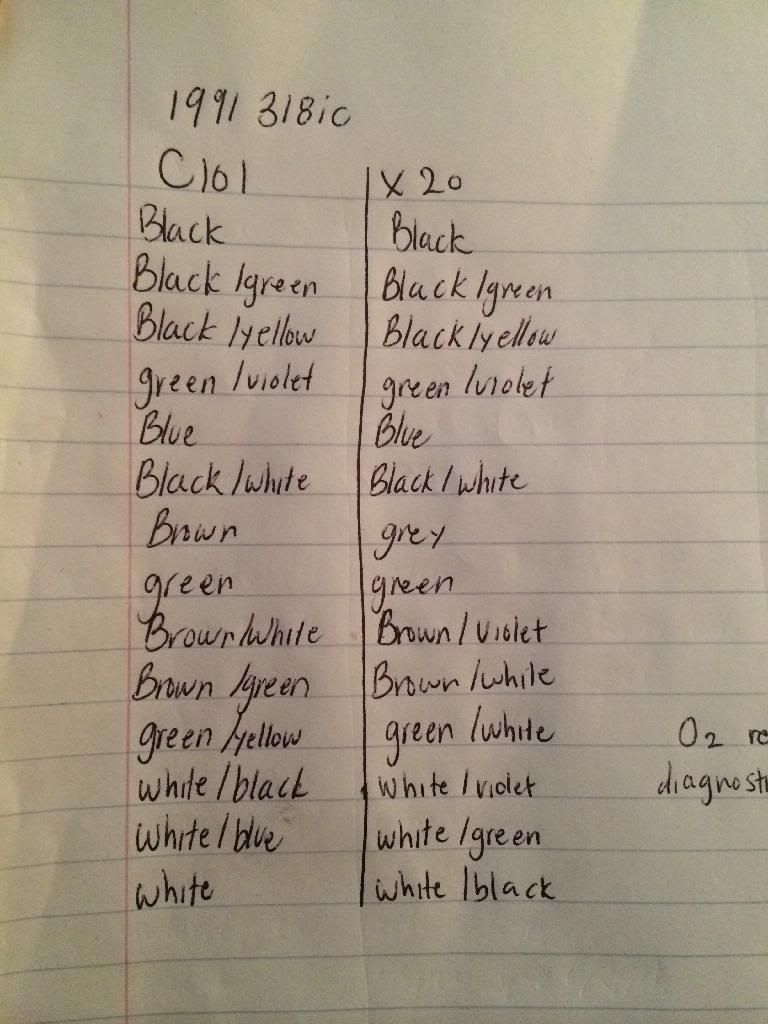 1991 318ic
C101 X20
Black Black
Black/green Black/green
Black/yellow Black/yellow
green/violet green/violet
Blue Blue
Black/white Black/white
Brown grey
green green
Brown/white Brown/violet
Brown/green Brown/white
green/yellow green/white O2 re
white/black white/violet diagnosti
white/blue white/green
white white/black